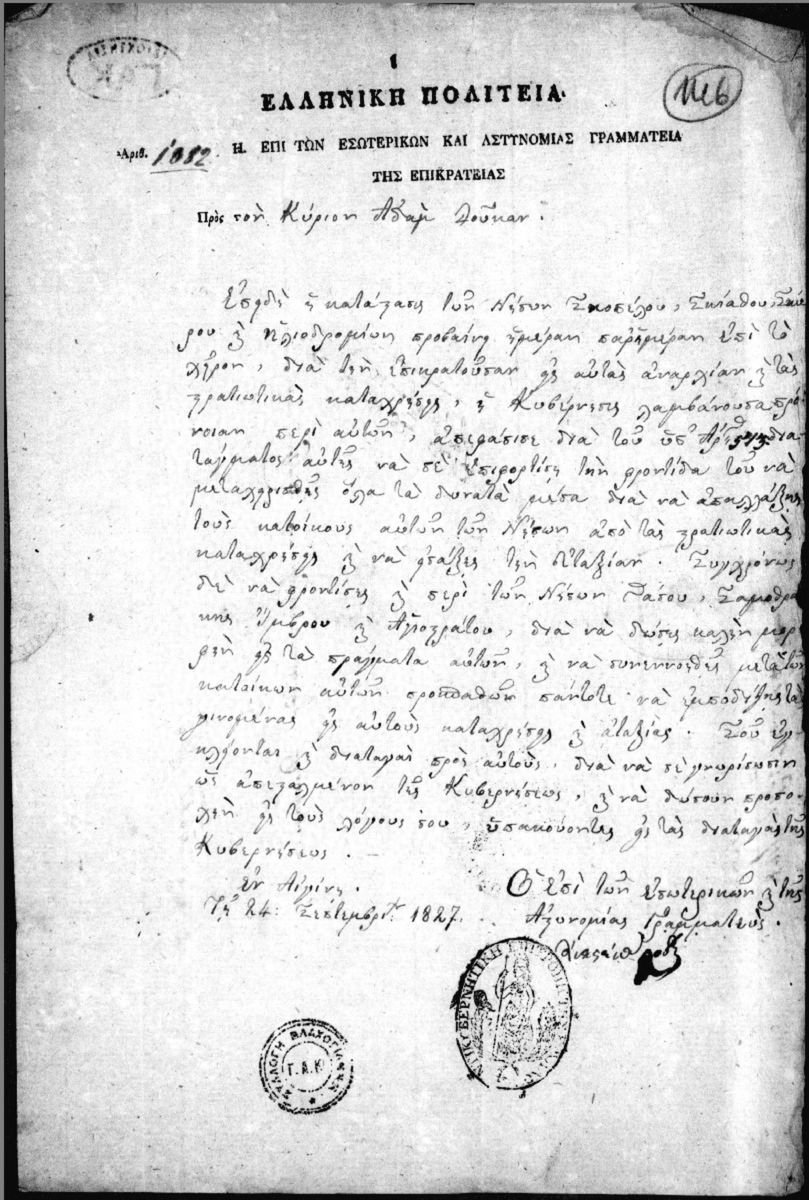 ΕΛΛΗΝΙΚΗ ΠΟΛΙΤΕΙΑ.
1116
Ἀριθ. 1082. Η. ΕΠΙ ΤΩΝ ΕΣΩΤΕΡΙΚΩΝ ΚΑΙ ΑΣΤΥΝΟΜΙΑΣ ΓΡΑΜΜΑΤΕΙΑ
ΤΗΣ ΕΠΙΚΡΑΤΕΙΑΣ
Πρὸς τὸν Κύριον Ἀδὰμ Δούκαν.
Ἐπειδὴ ἡ κατάστασις τῶν Νήσων Σκοπέλου, Σκιάθου, Σκύ
ρου καὶ Ηλιοδρομίων προβαίνει ἡμέραν παρ' ἡμέραν ἐπὶ τὸ
χεῖρον, διὰ τὴν ἐπικρατοῦσαν εἰς αὐτὰς ἀναρχίαν καὶ τὰς
στρατιωτικὰς καταχρήσεις, ἡ Κυβέρνησις λαμβάνουσα πρό
νοιαν περὶ αὐτῶν, ἀπεφάσισε διὰ τοῦ ὑπ' Ἀρ. δια
τάγματος αὐτῆς νὰ σὲ ἐπιφορτίσῃ τὴν φροντίδα τοῦ νὰ
μεταχειρισθῇς ὅλα τὰ δυνατὰ μέσα διὰ νὰ ἀπαλλάξῃς
τοὺς κατοίκους αὐτῶν τῶν Νήσων ἀπὸ τὰς στρατιωτικὰς
καταχρήσεις καὶ νὰ φυλάξῃς τὴν εὐταξίαν. Συγχρόνως
δὲ νὰ φροντίσῃς καὶ περὶ τῶν Νήσων Θάσου, Σαμοθρά
κης Ἴμβρου καὶ Ἁγιοστράτου, διὰ νὰ δώσῃς καλὴν μορ
φὴν εἰς τὰ πράγματα αὐτῶν, καὶ νὰ συνεννοηθῇς μετὰ τῶν
κατοίκων αὐτῶν προσπαθῶν πάντοτε νὰ ἐμποδίζῃς τὰς
γινομένας εἰς αὐτοὺς καταχρήσεις καὶ ἀταξίας. Σοῦ ἐγ
κλείονται καὶ διαταγαὶ πρὸς αὐτοὺς, διὰ νὰ σὲ γνωρίσωσιν
ὡς ἀπεσταλμένον τῆς Κυβερνήσεως, καὶ νὰ δώσουν προσο
χὴν εἰς τοὺς λόγους σου, ὑπακούοντες εἰς τὰς διαταγὰς τῆς
Κυβερνήσεως.
Ἐν Αἰγίνῃ.
Τῇ 24: Σεπτεμβρίου 1827.
Ὁ ἐπὶ τῶν ἐσωτερικῶν καὶ τῆς
Ἀστυνομίας Γραμματεύς.
ΣΥΛΛΟΓΗ ΒΛΑΧΟΓΙΑΝΝΗ
Γ.Α.Κ